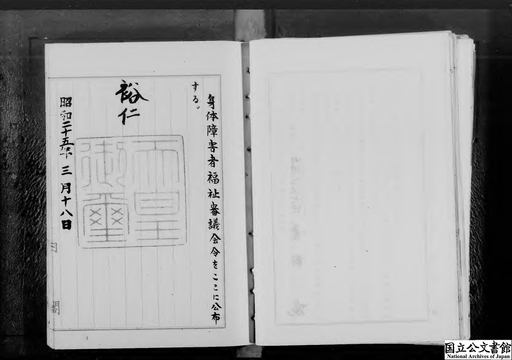 身体障害者福祉審議会令をここに公布
する。
裕仁
天皇
御璽
昭和二十五年三月十八日
国立公文書館
National Archives of Japan